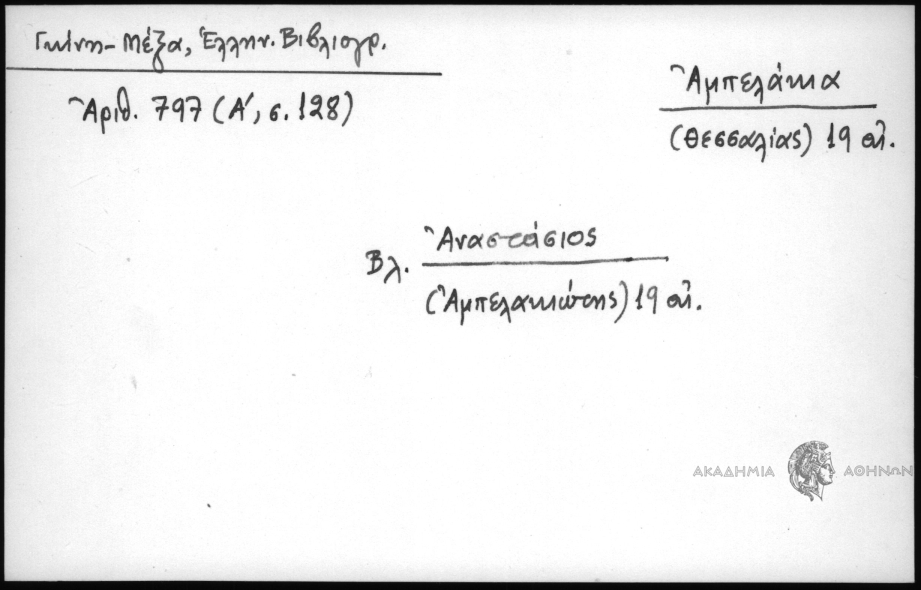 Γκίνη-Μέξα, Ἑλλην. Βιβλιογρ.
Ἀριθ. 797 (Α΄, σ. 128)
Ἀμπελάκια
(Θεσσαλίας) 19 αἰ.
Βλ. Ἀναστάσιος
(Ἀμπελακιώτης) 19 αἰ.
ΑΚΑΔΗΜΙΑ ΑΘΗΝΩΝ